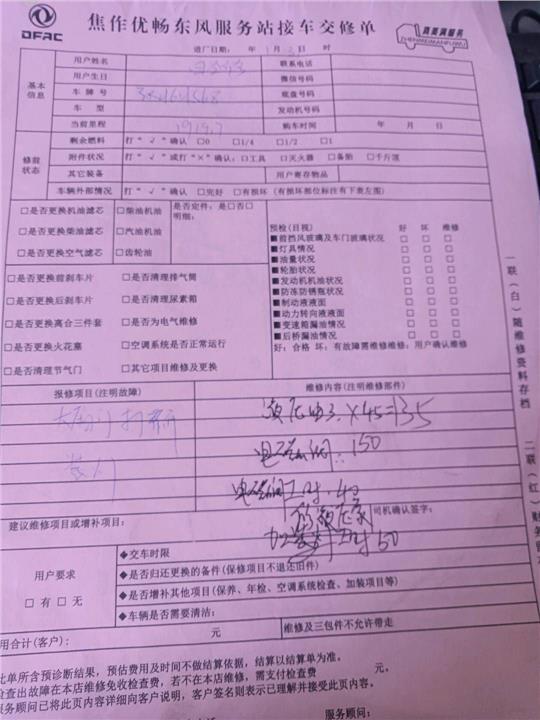 DFAC
焦作优畅东风服务站接车交修单
真真真服务
ZHENMEIMANFUWU
进厂日期： 年 1 月 3 日 时
基本信息
用户姓名 联系电话
用户生日 微信号码
车牌号 底盘号码
车 型 发动机号码
当前里程 购车时间 年 月 日
修前状态
剩余燃料 打“√”确认 □0 □1/4 □1/2 □1
附件状况 打“√”或打“×”确认：□工具 □灭火器 □备胎 □千斤顶
其它装备 用户寄存物品
车辆外部情况 打“√”确认 □完好 □有损坏（有损坏部位标注有下表左图）
□是否更换机油滤芯 □柴油机油 是否定件：是□否□
□是否更换柴油滤芯 □汽油机油 明细：
□是否更换空气滤芯 □齿轮油
□是否更换前刹车片 □是否清理排气筒
□是否更换后刹车片 □是否清理尿素箱
□是否更换离合三件套 □是否为电气维修
□是否更换火花塞 □空调系统是否正常运行
□是否清理节气门 □其它项目维修及更换
预检(目视) 好 坏 维修
■前挡风玻璃及车门玻璃状况 □ □ □
■灯具情况 □ □ □
■油量状况 □ □ □
■轮胎状况 □ □ □
■发动机机油状况 □ □ □
■防冻防锈瓶状况 □ □ □
■制动液液面 □ □ □
■动力转向液液面 □ □ □
■变速箱漏油情况 □ □ □
■后桥漏油情况 □ □ □
好：合格 坏：有故障需维修维修：用户确认维修
报修项目(注明故障) 维修内容(注明维修部件)
3×45=135
电磁阀：150
电磁阀工时·40
建议维修项目或增补项目： 司机确认签字：
工时50
用户要求
□有 □无
◆交车时限
◆是否归还更换的备件(保修项目不退还旧件)
◆是否增补其他项目(保养、年检、空调系统检查、加装项目等)
◆车辆是否需要清洁：
用合计(客户)： 元 维修及三包件不允许带走
此单所含预诊断结果，预估费用及时间不做结算依据，结算以结算单为准。
检查出故障在本店维修免收检查费，若不在本店维修，需支付检查费 元。
服务顾问已将此页内容详细向客户说明，客户签名则表示已理解并接受此页内容。
服务顾问：
一联（白）随维修资料存档
二联（红）